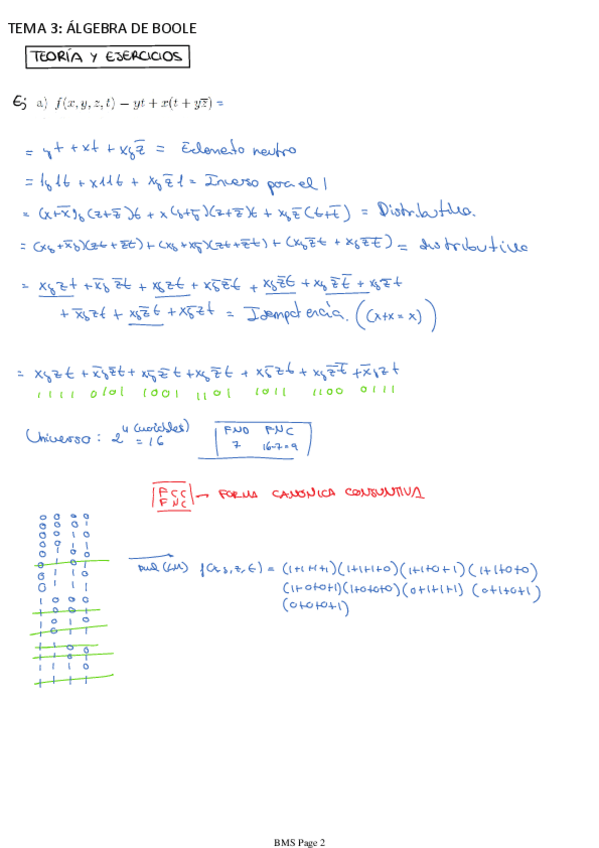 TEMA 3: ÁLGEBRA DE BOOLE
TEORÍA Y EJERCICIOS
Ej a) f(x, y, z, t) = yt + x(t + yz̅) =
= yt + xt + xyz̅ = Elemento neutro
= 1y1t + x11t + xyz̅1 = Inverso para el 1
= (x+x̅)y(z+z̅)t + x(y+y̅)(z+z̅)t + xyz̅(t+t̅) = Distributiva.
= (xy+x̅y)(zt+z̅t)+(xy+xy̅)(zt+z̅t)+(xyz̅t+xyz̅t̅) = distributiva
= xyzt + x̅yz̅t + xyzt + xy̅z̅t + xyz̅t + xyz̅t̅ + xyz̅t
+ x̅yzt + xyz̅t + xy̅zt = Idempotencia. (x+x = x)
= xyzt + x̅yz̅t + xy̅z̅t + xyz̅t + xy̅zt + xyz̅t̅ + x̅yzt
1111 0101 1001 1101 1011 1100 0111
Universo: 2^4 (variables) = 16
FND FNC
7 16-7=9
FCC
FNC → FORMA CANÓNICA CONJUNTIVA
0 0 0 0
0 0 0 1
0 0 1 0
0 0 1 1
0 1 0 0
0 1 0 1
0 1 1 0
0 1 1 1
1 0 0 0
1 0 0 1
1 0 1 0
1 0 1 1
1 1 0 0
1 1 0 1
1 1 1 0
1 1 1 1
f(x,y,z,t) = (1+1+1+1)(1+1+1+0)(1+1+0+1)(1+1+0+0)
(1+0+0+1)(1+0+0+0)(0+1+1+1)(0+1+0+1)
(0+0+0+1)
BMS Page 2